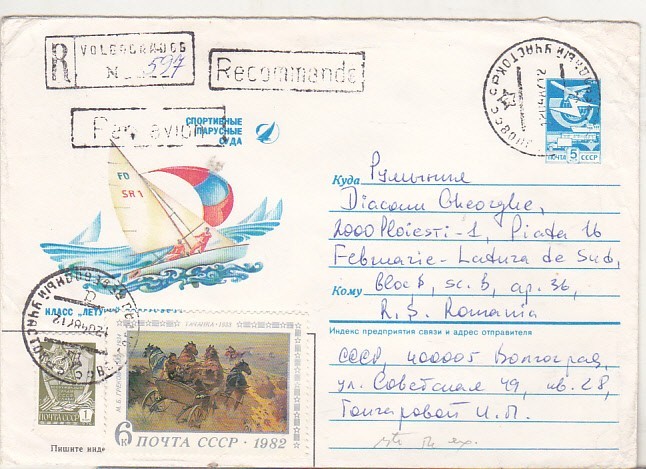 R VOLGOGRAD 05
N 597
Recommande
Par avion
СПОРТИВНЫЕ
ПАРУСНЫЕ
СУДА
FD
SR1
КЛАСС „ЛЕТУ
ПОЧТА 5 СССР
Куда Румыния
Diaconu Gheorghe,
2000 Ploiesti-1, Piata 16
Februarie-Latura de Sud,
Кому bloc B, sc. B, ap. 36,
R.S. Romania
Индекс предприятия связи и адрес отправителя
СССР, 400005 Волгоград,
ул. Советская 49, кв. 28,
Гончаровой И. П.
ТАЧАНКА • 1933
М. Б. ГРЕКОВ
6к ПОЧТА СССР • 1982
1
Пишите инде